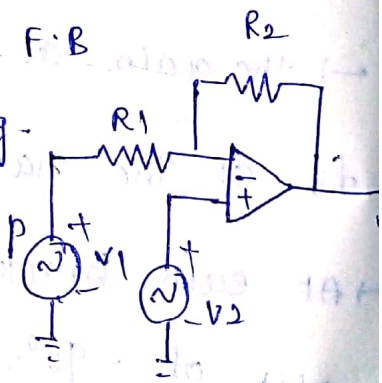 F·B
R2
R1
P
+
V1
-
-
+
+
-V2